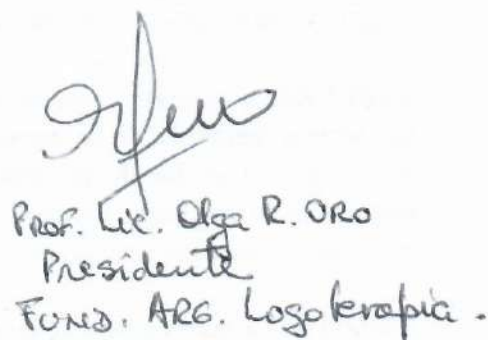 Prof. Lic. Olga R. ORO
Presidente
FUND. ARG. Logoterapia.